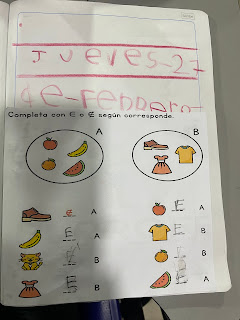 Jueves-27
de-Febrero
Completa con ∈ o ∉ según corresponde.
A B
∈ A E A
E A E B
B B
E B A